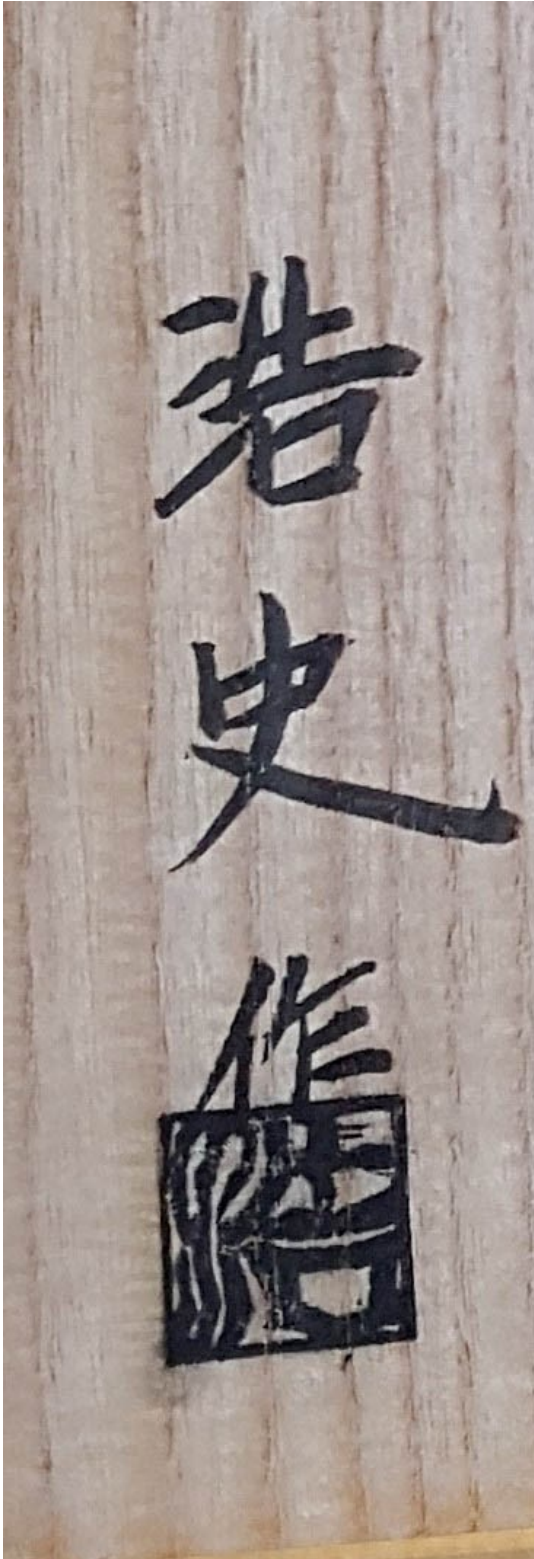 浩史作
浩